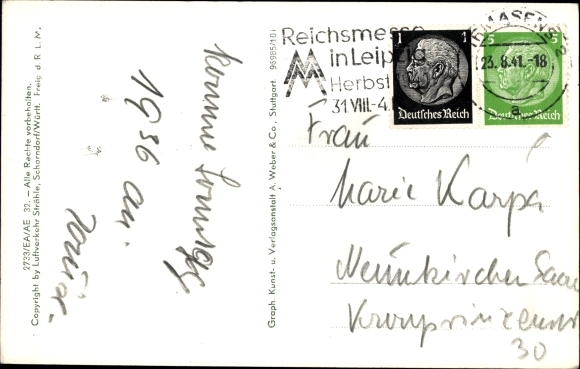 2733/EA/AE 32. — Alle Rechte vorbehalten.
Copyright by Luftverkehr Strähle, Schorndorf/Württ. Freig. d. R. L. M.
komme Sonntag
1936 an.
Graph. Kunst- u. Verlagsanstalt A. Weber & Co., Stuttgart. 96985/101
Reichsmesse
in Leipzig
Herbst
31.VIII.-4.
1 1
Deutsches Reich
5 5
Deutsches Reich
23.8.41.-18
a
Frau
Marie Karpa
Neunkirchen Saar
30